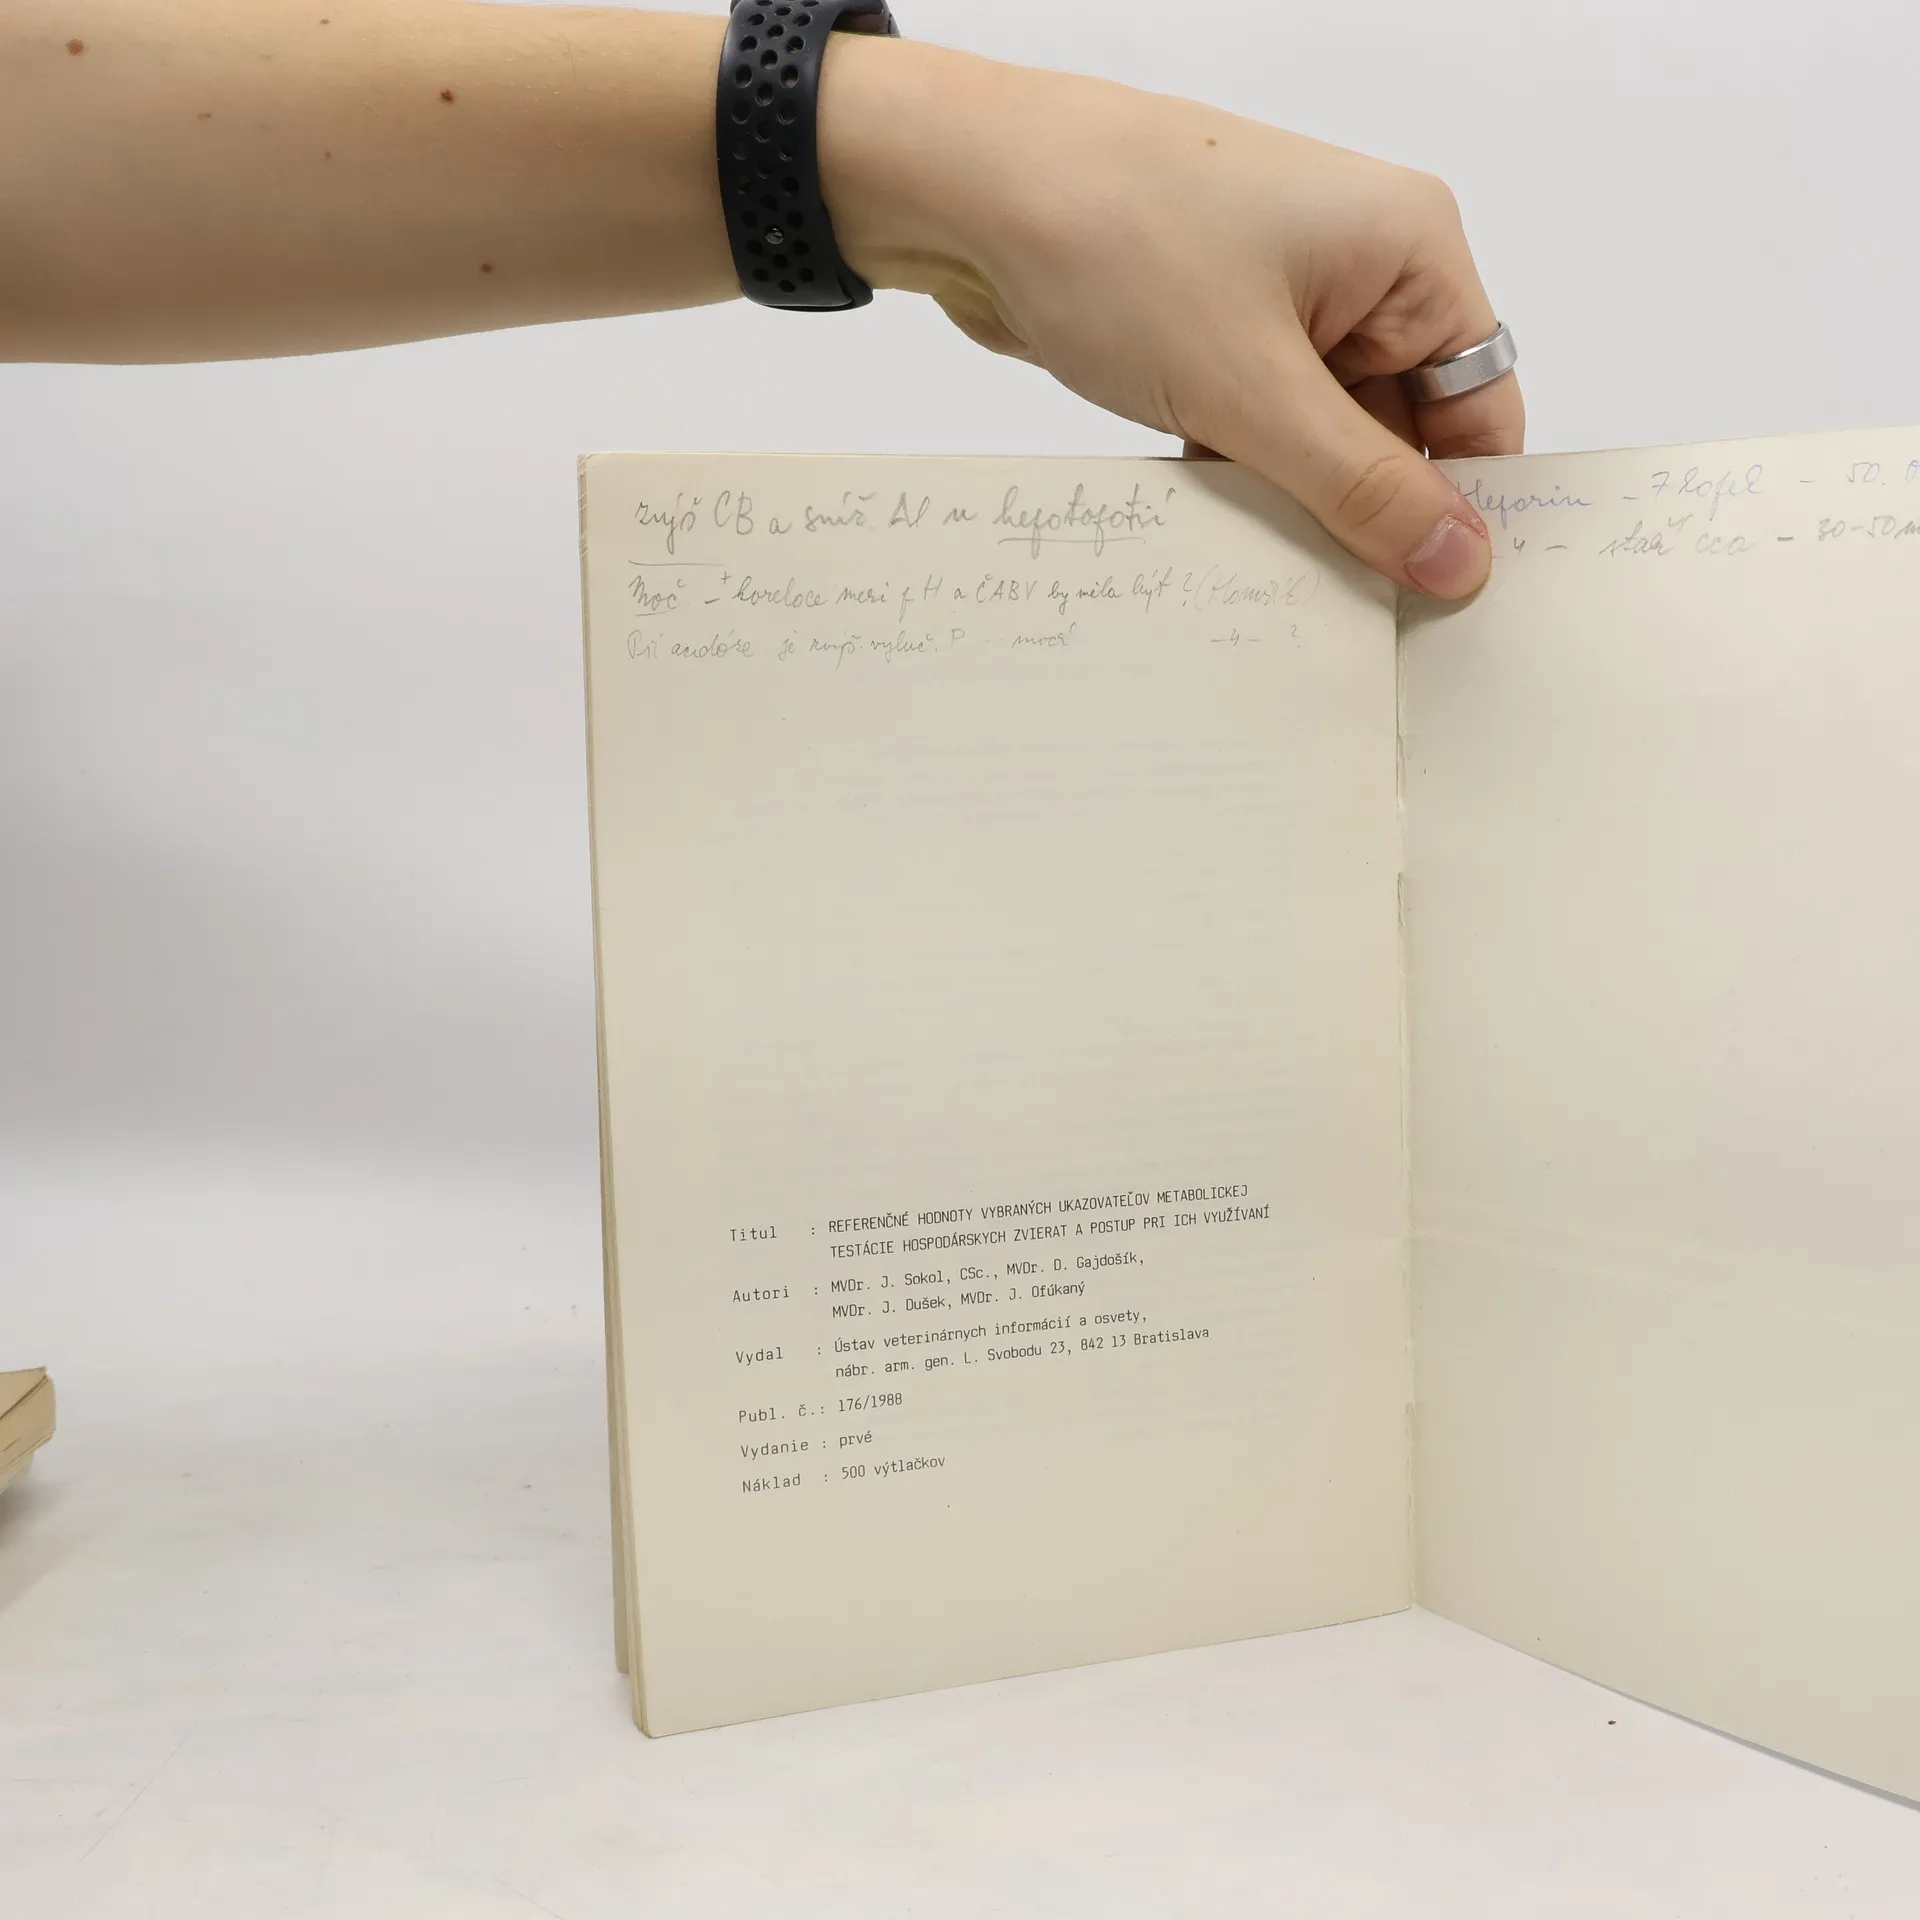 zvýš CB a sníž. Al u hepatopatií
Moč - + korelace mezi pH a ČABV by měla být ?
Při acidóze je zvýš. vyluč. P močí -"- ?
Heparin - 7 - 50.
-"- - cca - 30-50
Titul : REFERENČNÉ HODNOTY VYBRANÝCH UKAZOVATEĽOV METABOLICKEJ
TESTÁCIE HOSPODÁRSKYCH ZVIERAT A POSTUP PRI ICH VYUŽÍVANÍ
Autori : MVDr. J. Sokol, CSc., MVDr. D. Gajdošík,
MVDr. J. Dušek, MVDr. J. Ofúkaný
Vydal : Ústav veterinárnych informácií a osvety,
nábr. arm. gen. L. Svobodu 23, 842 13 Bratislava
Publ. č.: 176/1988
Vydanie : prvé
Náklad : 500 výtlačkov